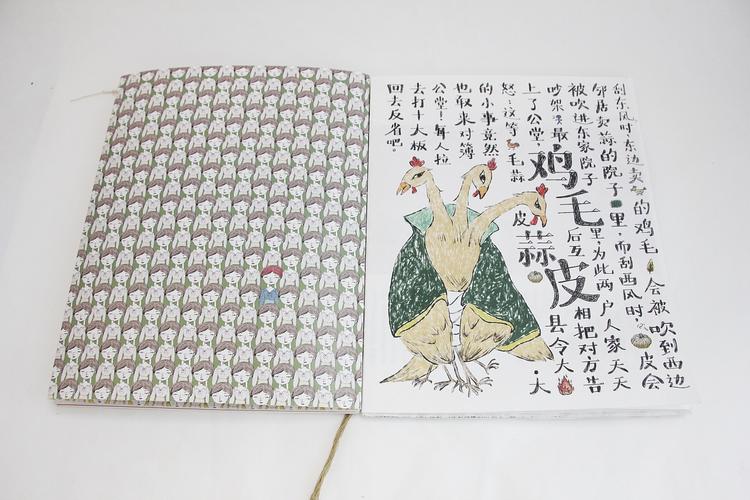 刮东风时,东边卖的鸡毛会被吹到西边
邻居卖蒜的院子里,而刮西风时,皮会
被吹进东家院子里,为此两户人家天天
吵架,最后互相把对方告
上了公堂,县令大·大
鸡毛蒜皮
怒:这等毛蒜皮
的小事竟然
也敢来对簿
公堂!每人拉
去打十大板
回去反省吧。